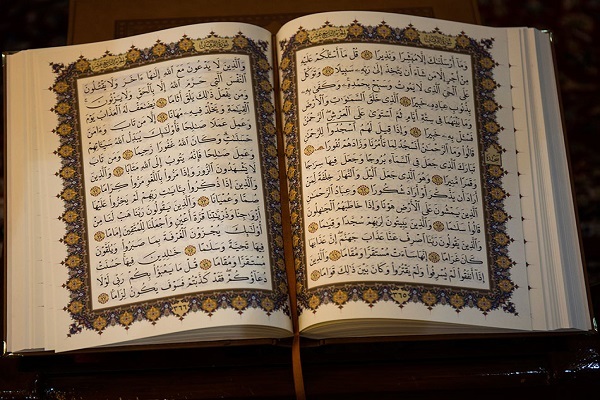 وَمَآ أَرْسَلْنَٰكَ إِلَّا مُبَشِّرًا وَنَذِيرًا ۝٥٦ قُلْ مَآ أَسْـَٔلُكُمْ عَلَيْهِ
مِنْ أَجْرٍ إِلَّا مَن شَآءَ أَن يَتَّخِذَ إِلَىٰ رَبِّهِۦ سَبِيلًا ۝٥٧ وَتَوَكَّلْ
عَلَى ٱلْحَىِّ ٱلَّذِى لَا يَمُوتُ وَسَبِّحْ بِحَمْدِهِۦ وَكَفَىٰ بِهِۦ
بِذُنُوبِ عِبَادِهِۦ خَبِيرًا ۝٥٨ ٱلَّذِى خَلَقَ ٱلسَّمَٰوَٰتِ وَٱلْأَرْضَ
وَمَا بَيْنَهُمَا فِى سِتَّةِ أَيَّامٍ ثُمَّ ٱسْتَوَىٰ عَلَى ٱلْعَرْشِ ٱلرَّحْمَٰنُ
فَسْـَٔلْ بِهِۦ خَبِيرًا ۝٥٩ وَإِذَا قِيلَ لَهُمُ ٱسْجُدُوا۟ لِلرَّحْمَٰنِ
قَالُوا۟ وَمَا ٱلرَّحْمَٰنُ أَنَسْجُدُ لِمَا تَأْمُرُنَا وَزَادَهُمْ نُفُورًا ۩ ۝٦٠
تَبَارَكَ ٱلَّذِى جَعَلَ فِى ٱلسَّمَآءِ بُرُوجًا وَجَعَلَ فِيهَا سِرَٰجًا
وَقَمَرًا مُّنِيرًا ۝٦١ وَهُوَ ٱلَّذِى جَعَلَ ٱلَّيْلَ وَٱلنَّهَارَ خِلْفَةً لِّمَنْ
أَرَادَ أَن يَذَّكَّرَ أَوْ أَرَادَ شُكُورًا ۝٦٢ وَعِبَادُ ٱلرَّحْمَٰنِ
ٱلَّذِينَ يَمْشُونَ عَلَى ٱلْأَرْضِ هَوْنًا وَإِذَا خَاطَبَهُمُ ٱلْجَٰهِلُونَ
قَالُوا۟ سَلَٰمًا ۝٦٣ وَٱلَّذِينَ يَبِيتُونَ لِرَبِّهِمْ سُجَّدًا وَقِيَٰمًا ۝٦٤
وَٱلَّذِينَ يَقُولُونَ رَبَّنَا ٱصْرِفْ عَنَّا عَذَابَ جَهَنَّمَ إِنَّ عَذَابَهَا
كَانَ غَرَامًا ۝٦٥ إِنَّهَا سَآءَتْ مُسْتَقَرًّا وَمُقَامًا ۝٦٦ وَٱلَّذِينَ
إِذَآ أَنفَقُوا۟ لَمْ يُسْرِفُوا۟ وَلَمْ يَقْتُرُوا۟ وَكَانَ بَيْنَ ذَٰلِكَ قَوَامًا ۝٦٧
٣٦٥
وَٱلَّذِينَ لَا يَدْعُونَ مَعَ ٱللَّهِ إِلَٰهًا ءَاخَرَ وَلَا يَقْتُلُونَ
ٱلنَّفْسَ ٱلَّتِى حَرَّمَ ٱللَّهُ إِلَّا بِٱلْحَقِّ وَلَا يَزْنُونَ
وَمَن يَفْعَلْ ذَٰلِكَ يَلْقَ أَثَامًا ۝٦٨ يُضَٰعَفْ لَهُ ٱلْعَذَابُ يَوْمَ
ٱلْقِيَٰمَةِ وَيَخْلُدْ فِيهِۦ مُهَانًا ۝٦٩ إِلَّا مَن تَابَ وَءَامَنَ
وَعَمِلَ عَمَلًا صَٰلِحًا فَأُو۟لَٰٓئِكَ يُبَدِّلُ ٱللَّهُ سَيِّـَٔاتِهِمْ
حَسَنَٰتٍ وَكَانَ ٱللَّهُ غَفُورًا رَّحِيمًا ۝٧٠ وَمَن تَابَ
وَعَمِلَ صَٰلِحًا فَإِنَّهُۥ يَتُوبُ إِلَى ٱللَّهِ مَتَابًا ۝٧١ وَٱلَّذِينَ
لَا يَشْهَدُونَ ٱلزُّورَ وَإِذَا مَرُّوا۟ بِٱللَّغْوِ مَرُّوا۟ كِرَامًا ۝٧٢
وَٱلَّذِينَ إِذَا ذُكِّرُوا۟ بِـَٔايَٰتِ رَبِّهِمْ لَمْ يَخِرُّوا۟ عَلَيْهَا
صُمًّا وَعُمْيَانًا ۝٧٣ وَٱلَّذِينَ يَقُولُونَ رَبَّنَا هَبْ لَنَا مِنْ
أَزْوَٰجِنَا وَذُرِّيَّٰتِنَا قُرَّةَ أَعْيُنٍ وَٱجْعَلْنَا لِلْمُتَّقِينَ إِمَامًا ۝٧٤
أُو۟لَٰٓئِكَ يُجْزَوْنَ ٱلْغُرْفَةَ بِمَا صَبَرُوا۟ وَيُلَقَّوْنَ
فِيهَا تَحِيَّةً وَسَلَٰمًا ۝٧٥ خَٰلِدِينَ فِيهَا حَسُنَتْ
مُسْتَقَرًّا وَمُقَامًا ۝٧٦ قُلْ مَا يَعْبَؤُا۟ بِكُمْ رَبِّى لَوْلَا
دُعَآؤُكُمْ فَقَدْ كَذَّبْتُمْ فَسَوْفَ يَكُونُ لِزَامًا ۝٧٧
٣٦٦